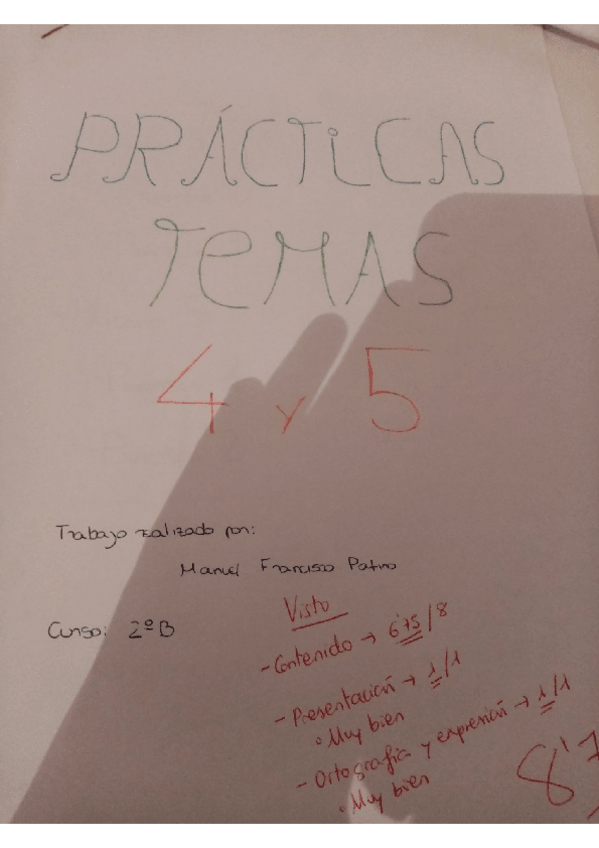 PRÁCTICAS
TEMAS
4 y 5
Trabajo realizado por:
Manuel Francisco Patino
Curso: 2º B
Visto
- Contenido → 6'75/8
- Presentación → 1/1
• Muy bien
- Ortografía y expresión → 1/1
• Muy bien
8'7